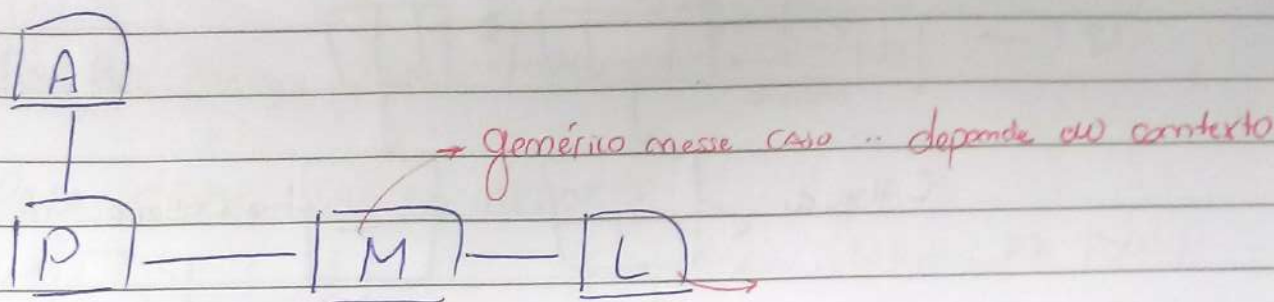 A
genérico nesse caso .. depende do contexto
P M L